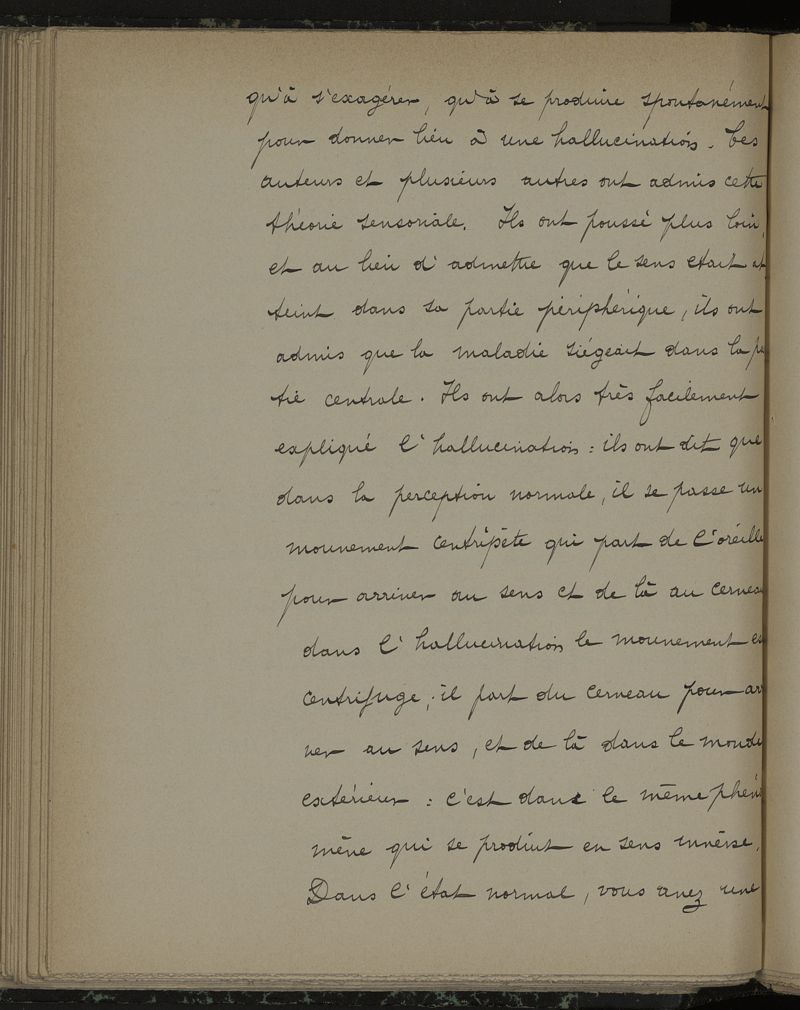 qu'à s'exagérer, qu'à se produire spontanément
pour donner lieu à une hallucination. Ces
auteurs et plusieurs autres ont admis cette
théorie sensoriale. Ils ont poussé plus loin,
et au lieu d'admettre que le sens etait at
teint dans sa partie périphérique, ils ont
admis que la maladie siégeait dans la pa
tie centrale. Ils ont alors très facilement
expliqué l'hallucination : ils ont dit que
dans la perception normale, il se passe un
mouvement centripète qui part de l'oreille
pour arriver au sens et de là au cerveau
dans l'hallucination le mouvement es
centrifuge ; il part du cerveau pour arri
ver au sens, et de là dans le monde
extérieur : c'est dans le même phéno
mène qui se produit en sens inverse.
Dans l'état normal, vous avez une